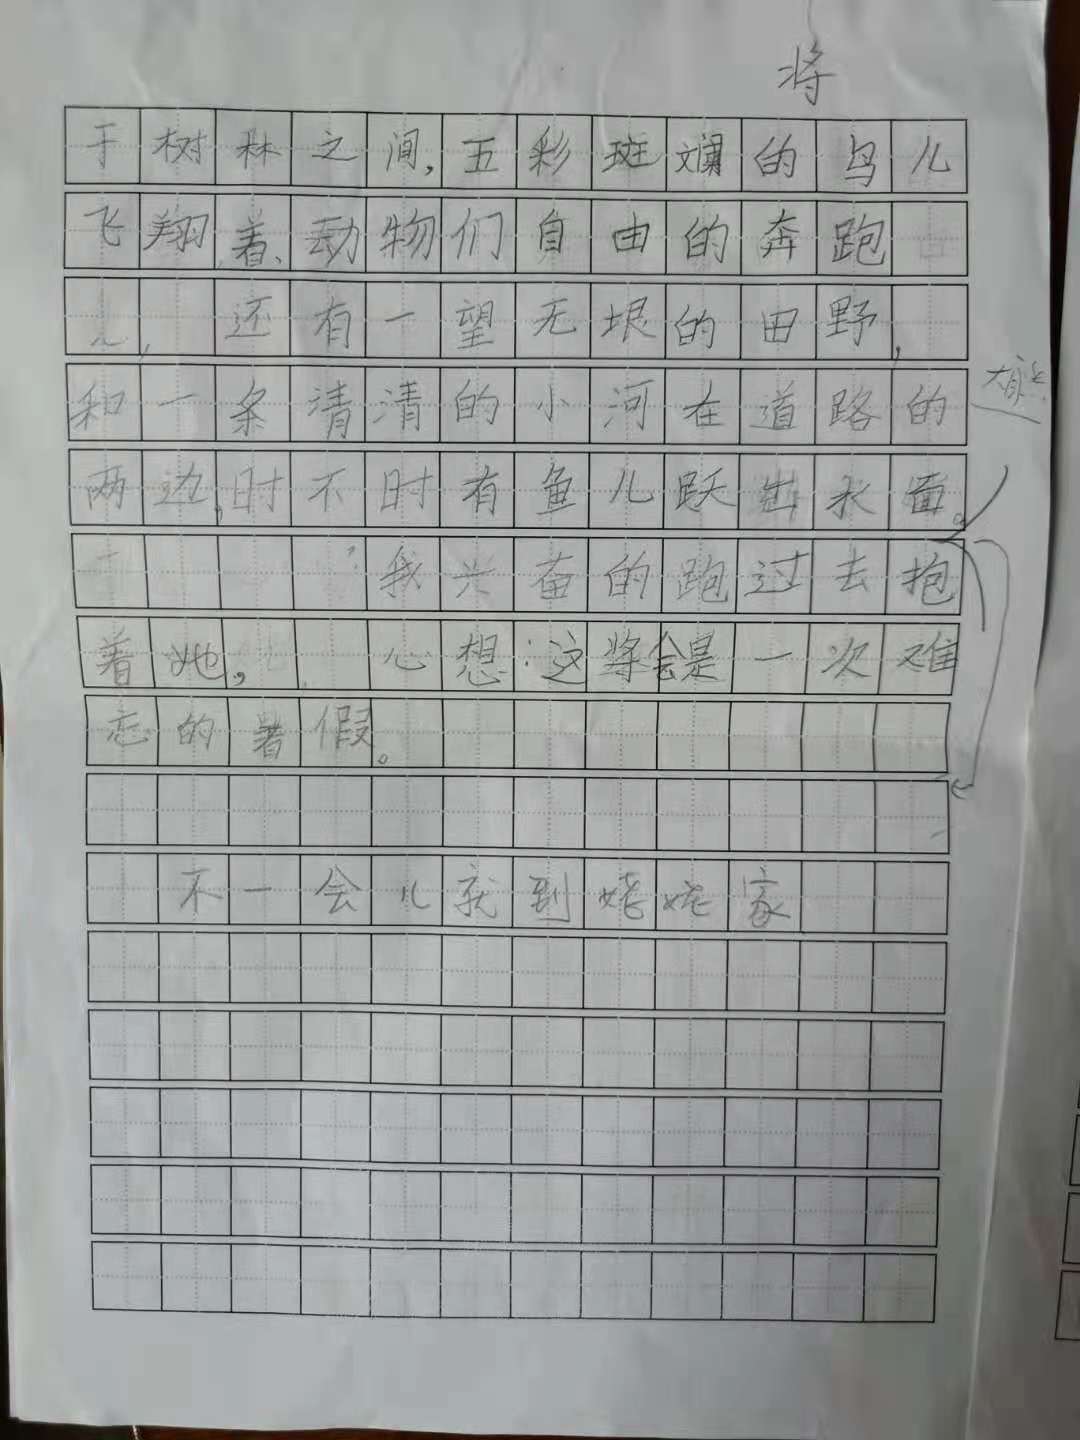 将
于树林之间,五彩斑斓的鸟儿
飞翔着、动物们自由的奔跑
,还有一望无垠的田野,
和一条清清的小河在道路的
两边,时不时有鱼儿跃出水面。
我兴奋的跑过去抱
着她,心想:这将会是一次难
忘的暑假。
不一会儿就到姥姥家